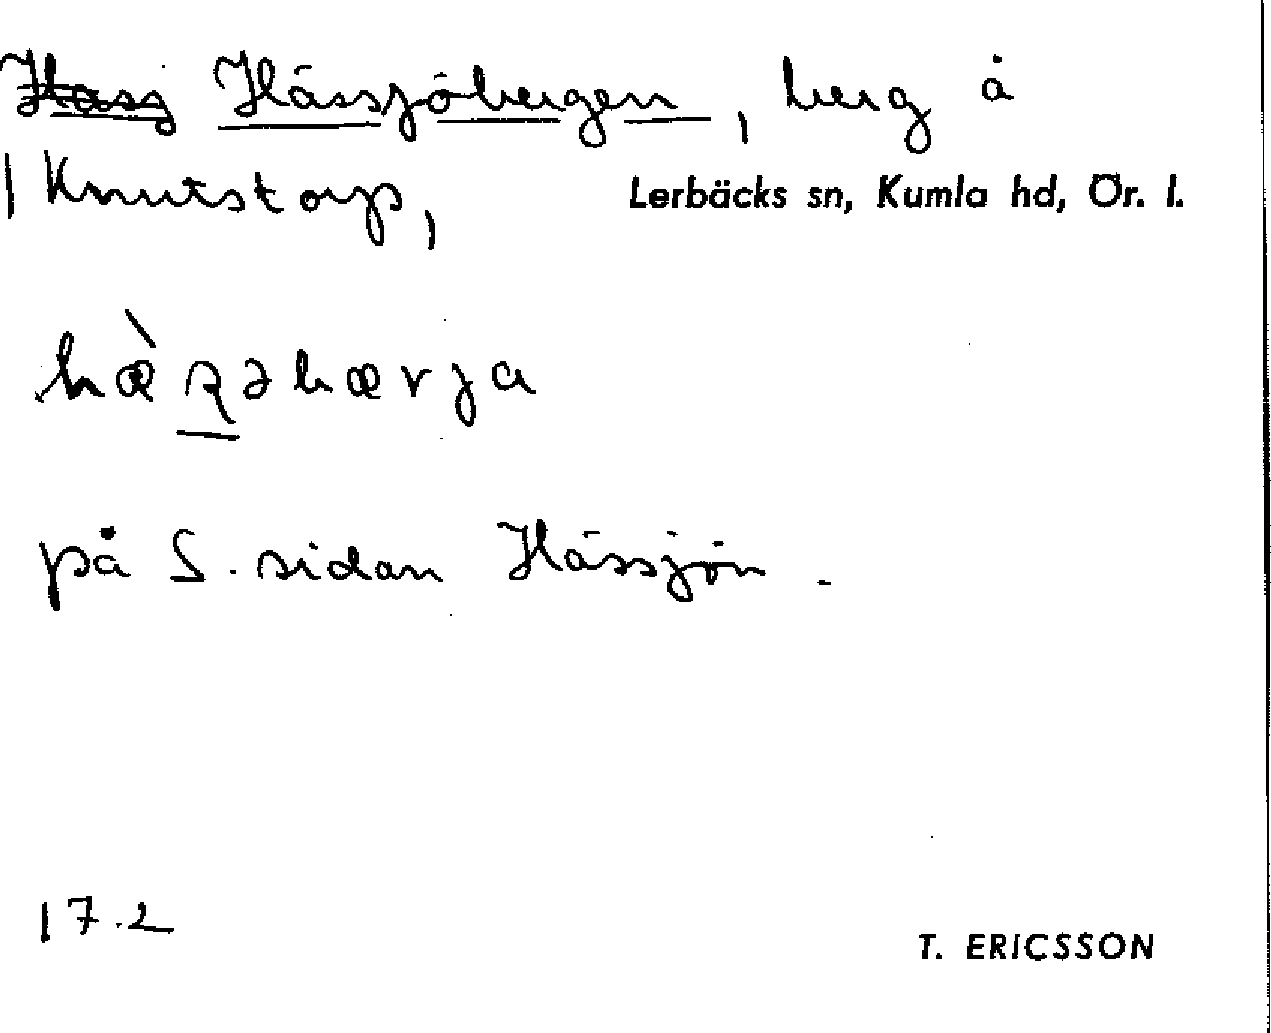 Hässjöbergen, berg å
Knutstorp,
Lerbäcks sn, Kumla hd, Ör. l.
på S. sidan Hässjön.
17.2
T. ERICSSON